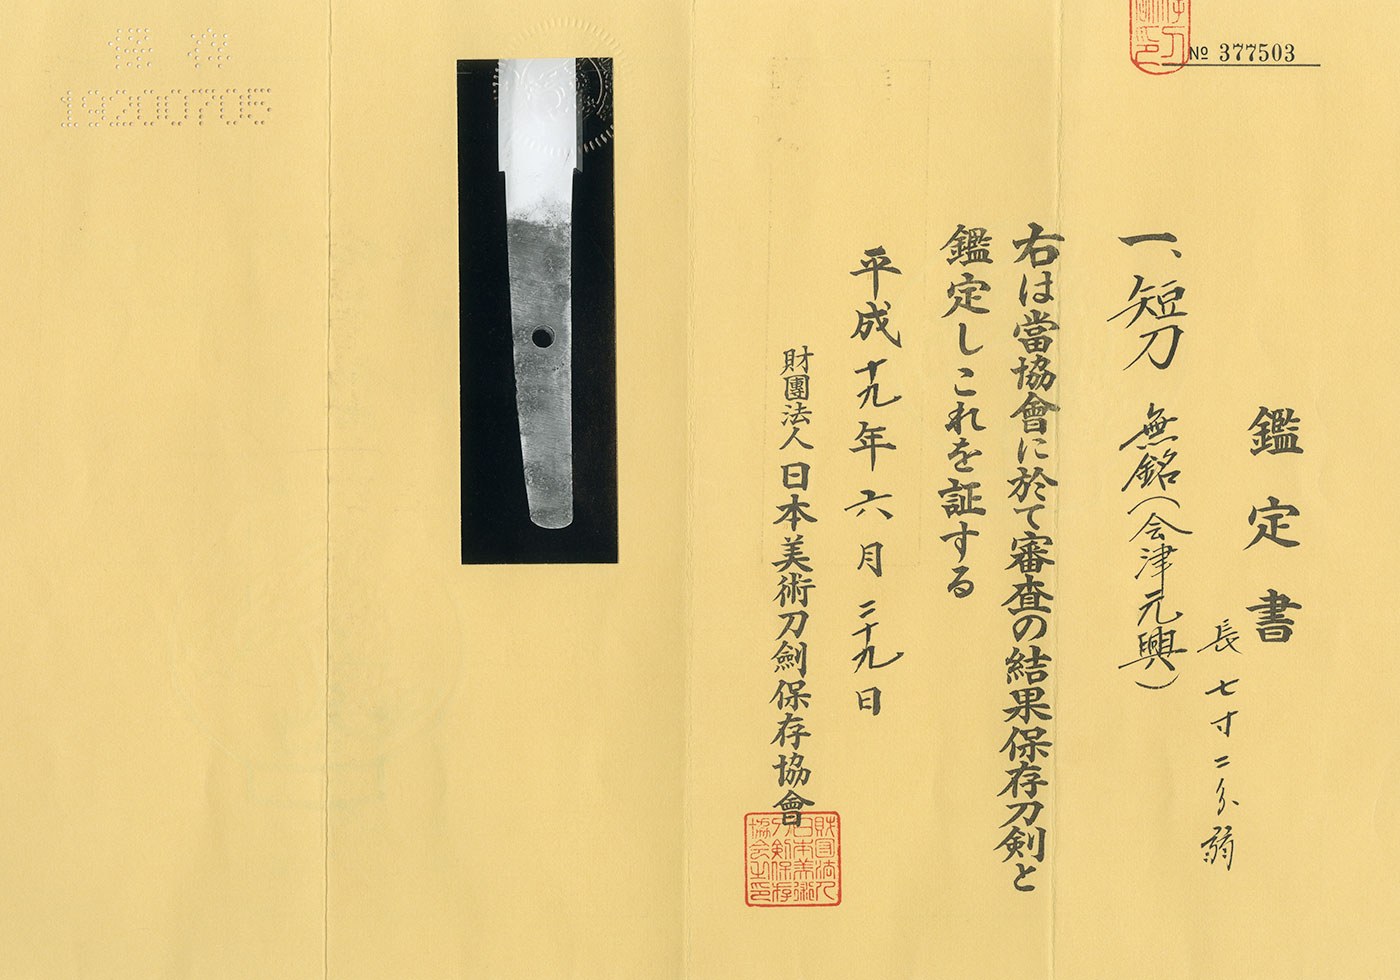 № 377503
鑑定書
長 七寸二分弱
一、短刀 無銘(会津元興)
右は當協會に於て審査の結果保存刀剣と
鑑定しこれを証する
平成十九年六月二十九日
財團法人日本美術刀劍保存協會
財団法人
日本美術
刀剣保存
協会之印
保存
19200705